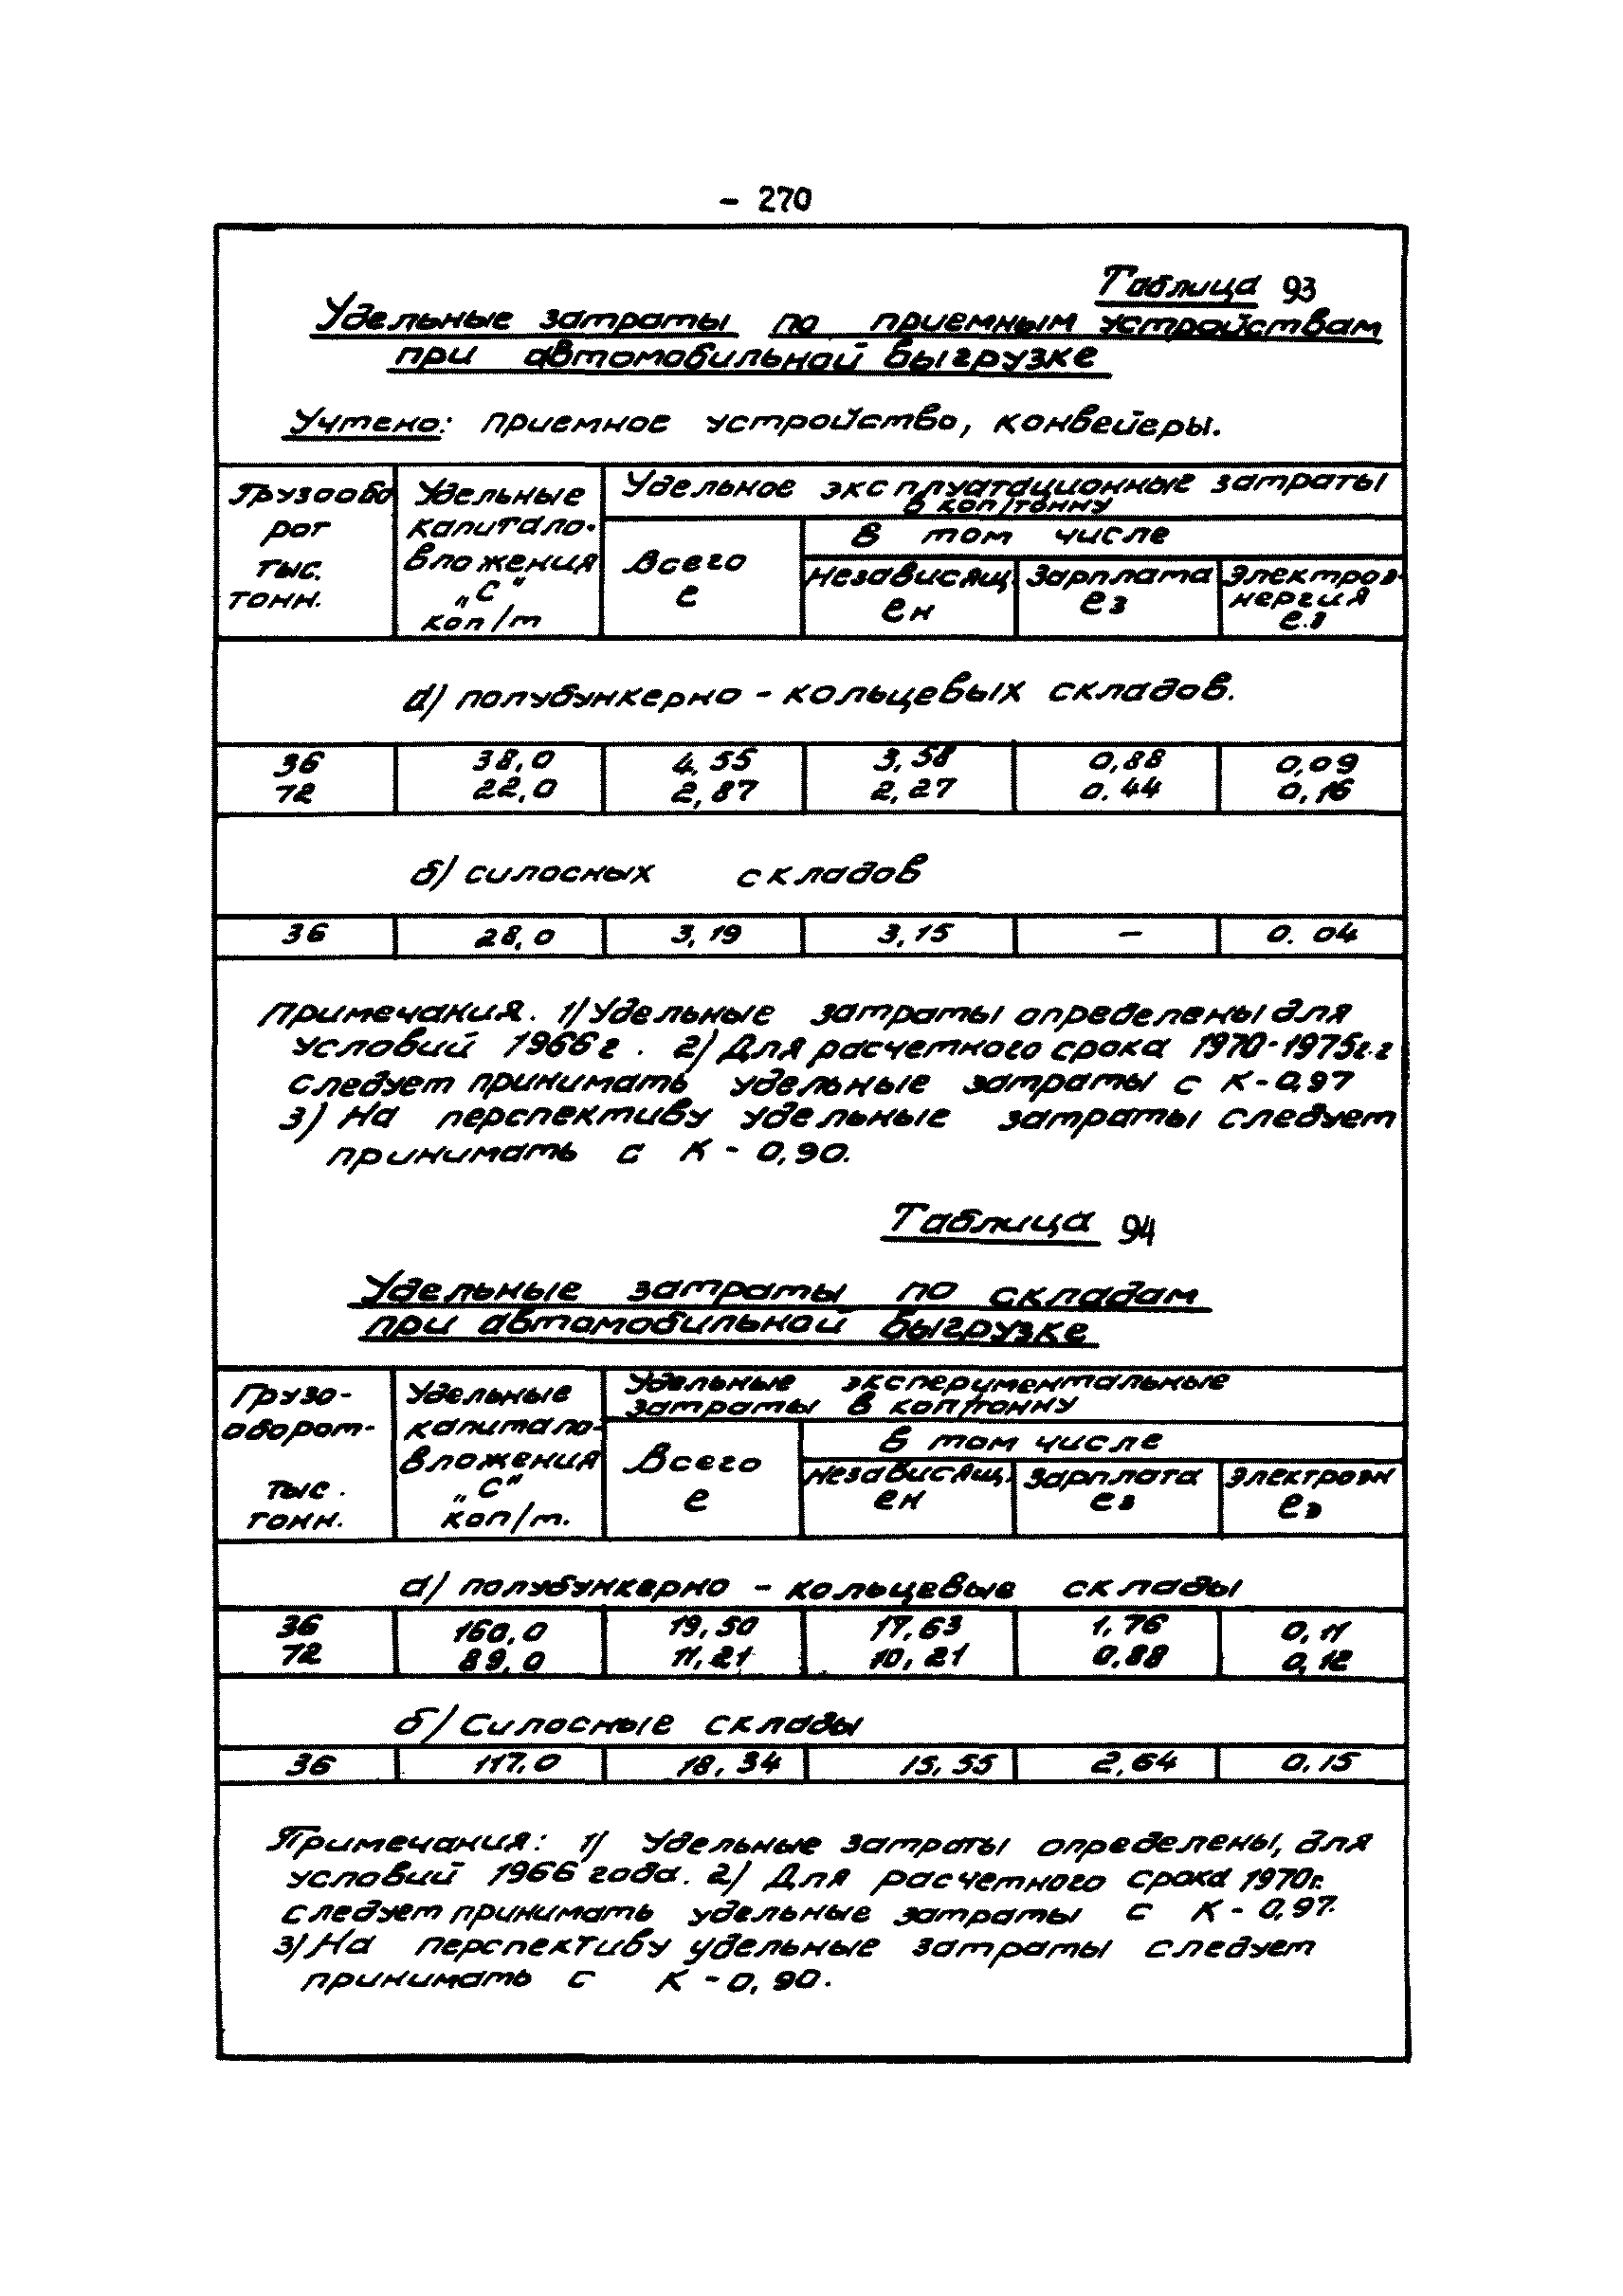 - 270
Таблица 93
Удельные затраты по приемным устройствам
при автомобильной выгрузке
Учтено: приемное устройство, конвейеры.
Грузообо
рот
тыс.
тонн.
Удельные
капитало-
вложения
„С“
коп/т
Удельное эксплуатационные затраты
в коп/тонну
Всего
е
В том числе
Независящ.
ен
Зарплата
ез
Электроэ-
нергия
е.э
а) полубункерно - кольцевых складов.
36 38,0 4,55 3,58 0,88 0,09
72 22,0 2,87 2,27 0.44 0,16
б) силосных складов
36 28,0 3,19 3,15 — 0.04
Примечания. 1) Удельные затраты определены для
условий 1966 г. 2) Для расчетного срока 1970-1975г.г
следует принимать удельные затраты с К-0,97
3) На перспективу удельные затраты следует
принимать с К - 0,90.
Таблица 94
Удельные затраты по складам
при автомобильной выгрузке
Грузо-
оборот-
тыс.
тонн.
Удельные
капитало-
вложения
„С“
коп/т.
Удельные экспериментальные
затраты в коп/тонну
Всего
е
В том числе
Независящ.
ен
Зарплата
ез
Электроэн
еэ
а) полубункерно - кольцевые склады
36 160,0 19,50 17,63 1,76 0,11
72 89,0 11,21 10,21 0,88 0,12
б) Силосные склады
36 117,0 18,34 15,55 2,64 0,15
Примечания: 1) Удельные затраты определены, для
условий 1966 года. 2) Для расчетного срока 1970г.
следует принимать удельные затраты с К - 0,97.
3) На перспективу удельные затраты следует
принимать с К - 0,90.